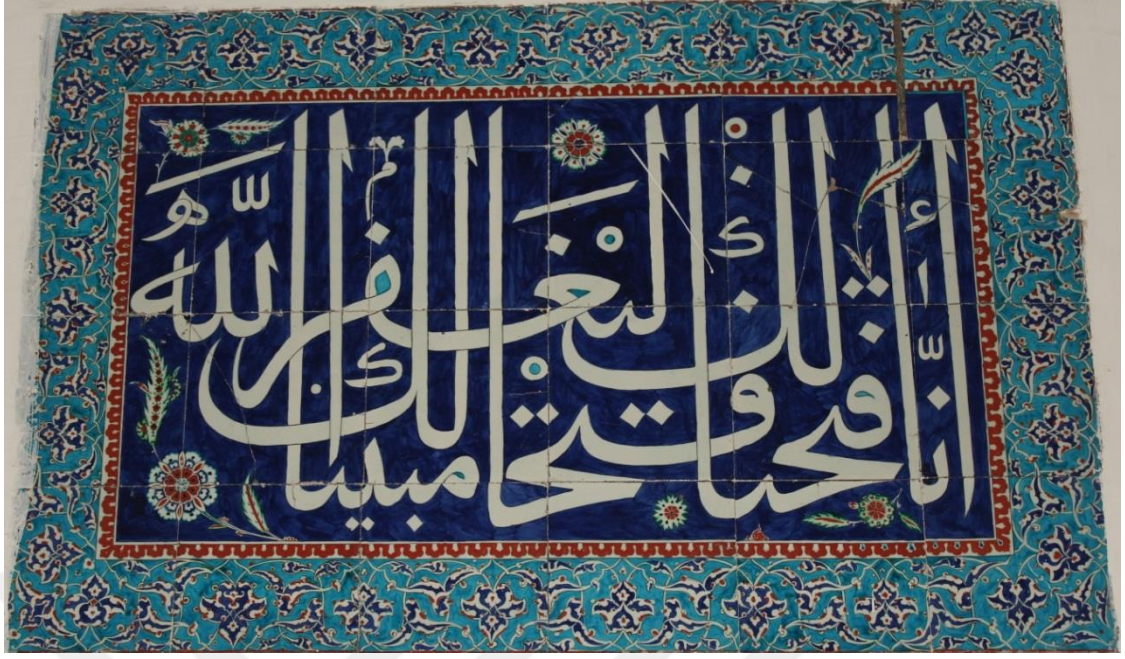 انا فتحنا لك فتحا مبينا ليغفر لك الله